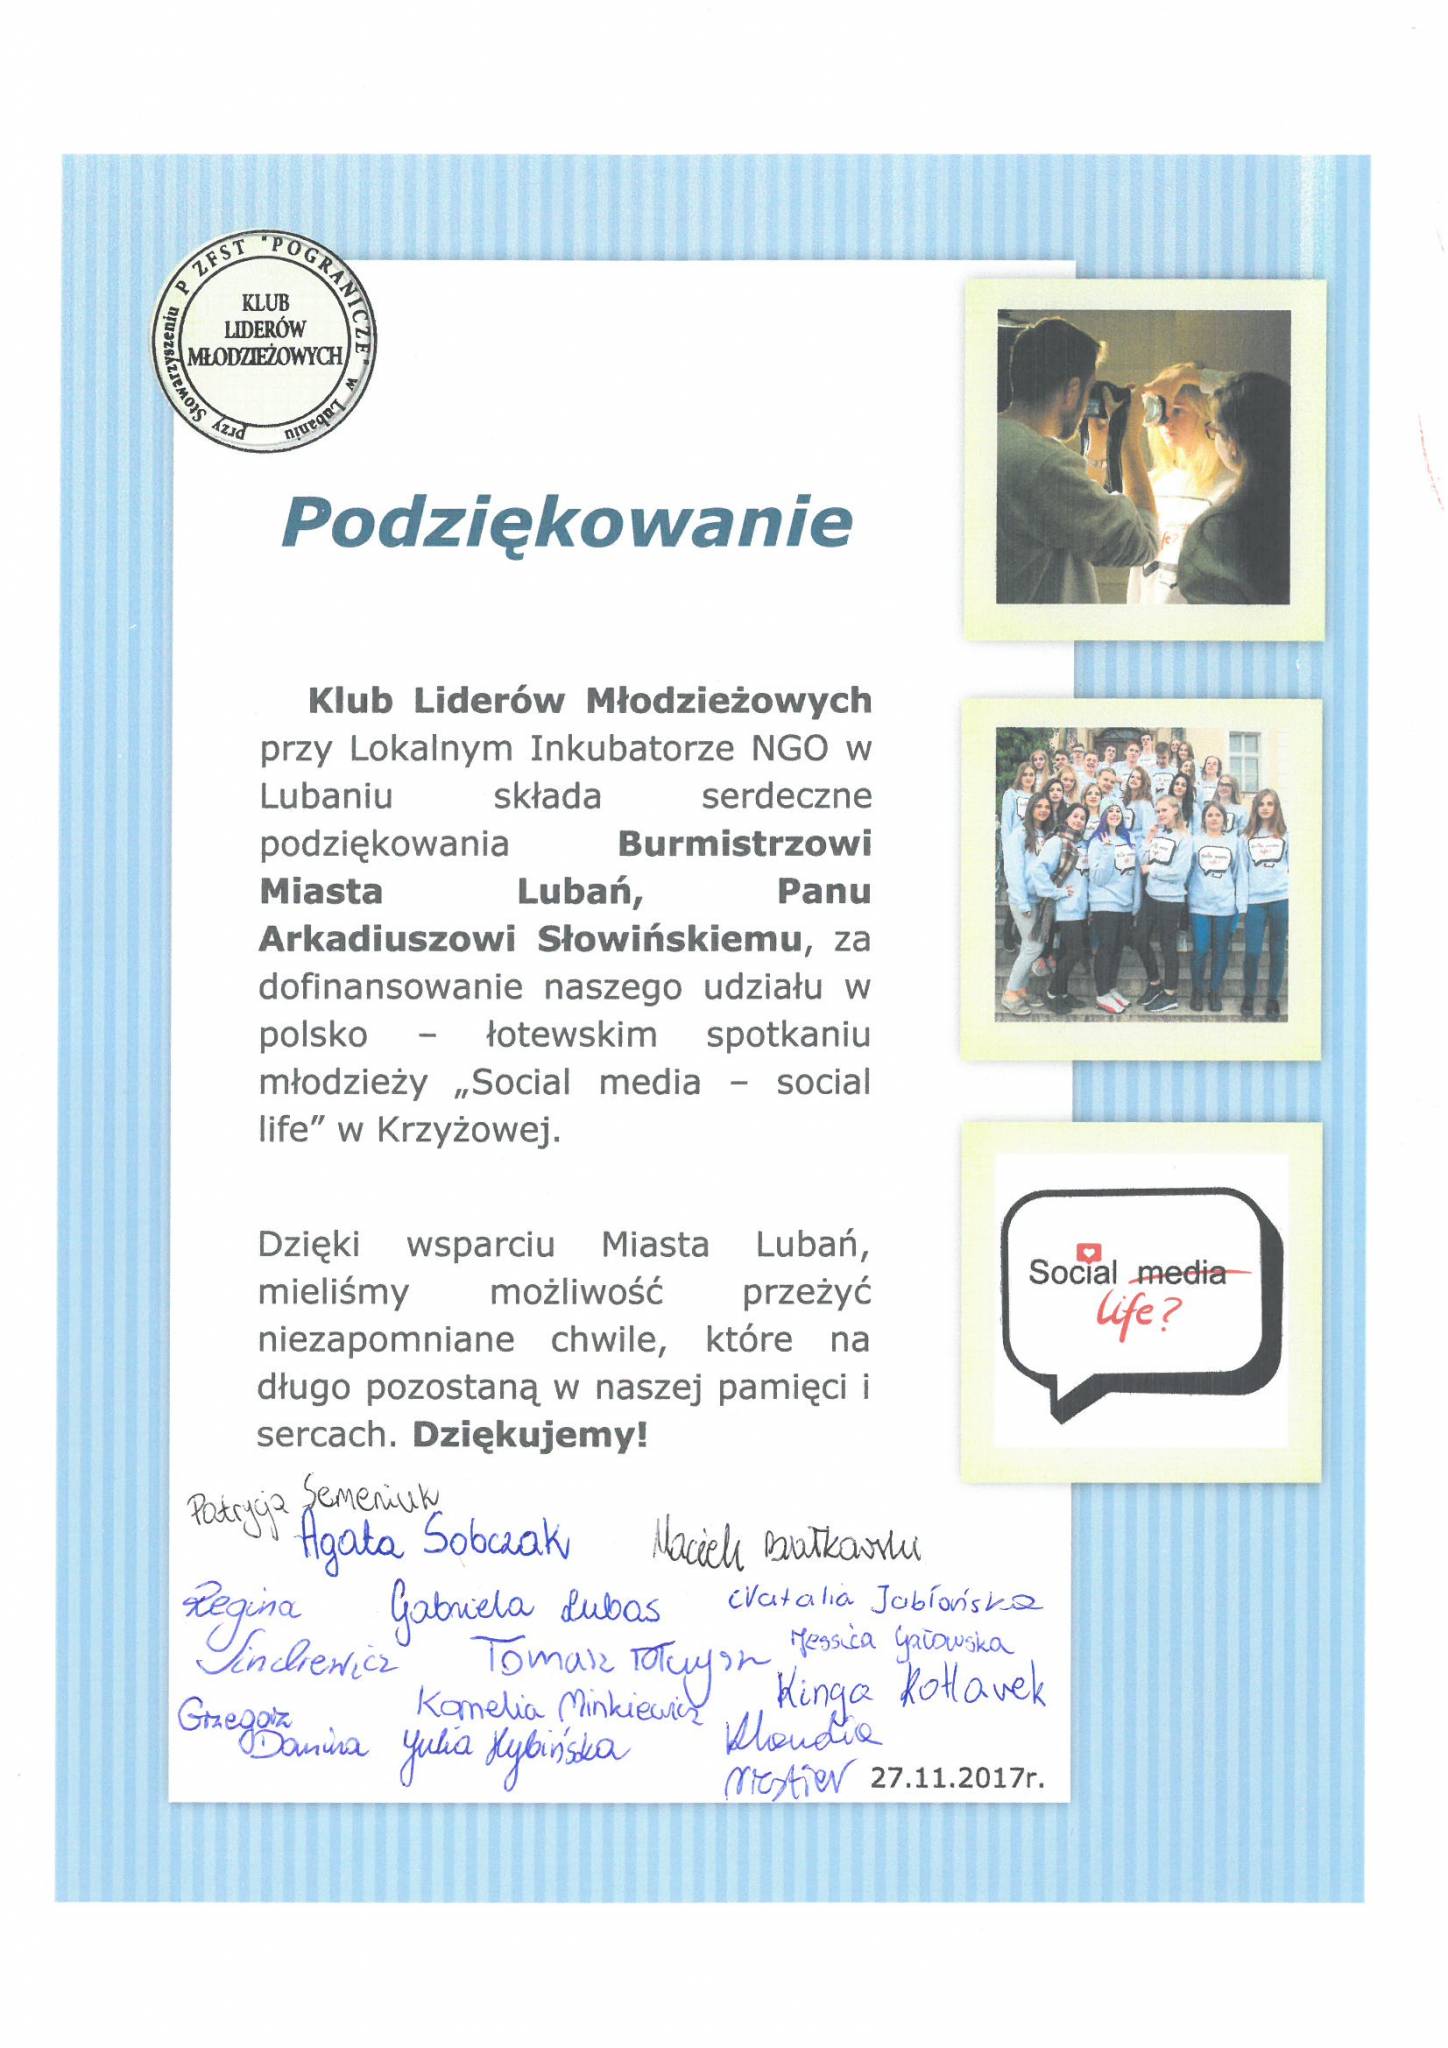 przy Stowarzyszeniu P ZFST "POGRANICZE" w Lubaniu
KLUB
LIDERÓW
MŁODZIEŻOWYCH
Podziękowanie
Klub Liderów Młodzieżowych
przy Lokalnym Inkubatorze NGO w
Lubaniu składa serdeczne
podziękowania Burmistrzowi
Miasta Lubań, Panu
Arkadiuszowi Słowińskiemu, za
dofinansowanie naszego udziału w
polsko – łotewskim spotkaniu
młodzieży „Social media – social
life” w Krzyżowej.
Dzięki wsparciu Miasta Lubań,
mieliśmy możliwość przeżyć
niezapomniane chwile, które na
długo pozostaną w naszej pamięci i
sercach. Dziękujemy!
Social media
life?
Patrycja Semeniuk
Agata Sobczak
Regina
Gabriela Lubas
Natalia Jabłońska
Jessica
Tomasz
Kinga
Grzegorz
Kornelia Minkiewicz
Julia Hybińska
Klaudia
27.11.2017r.